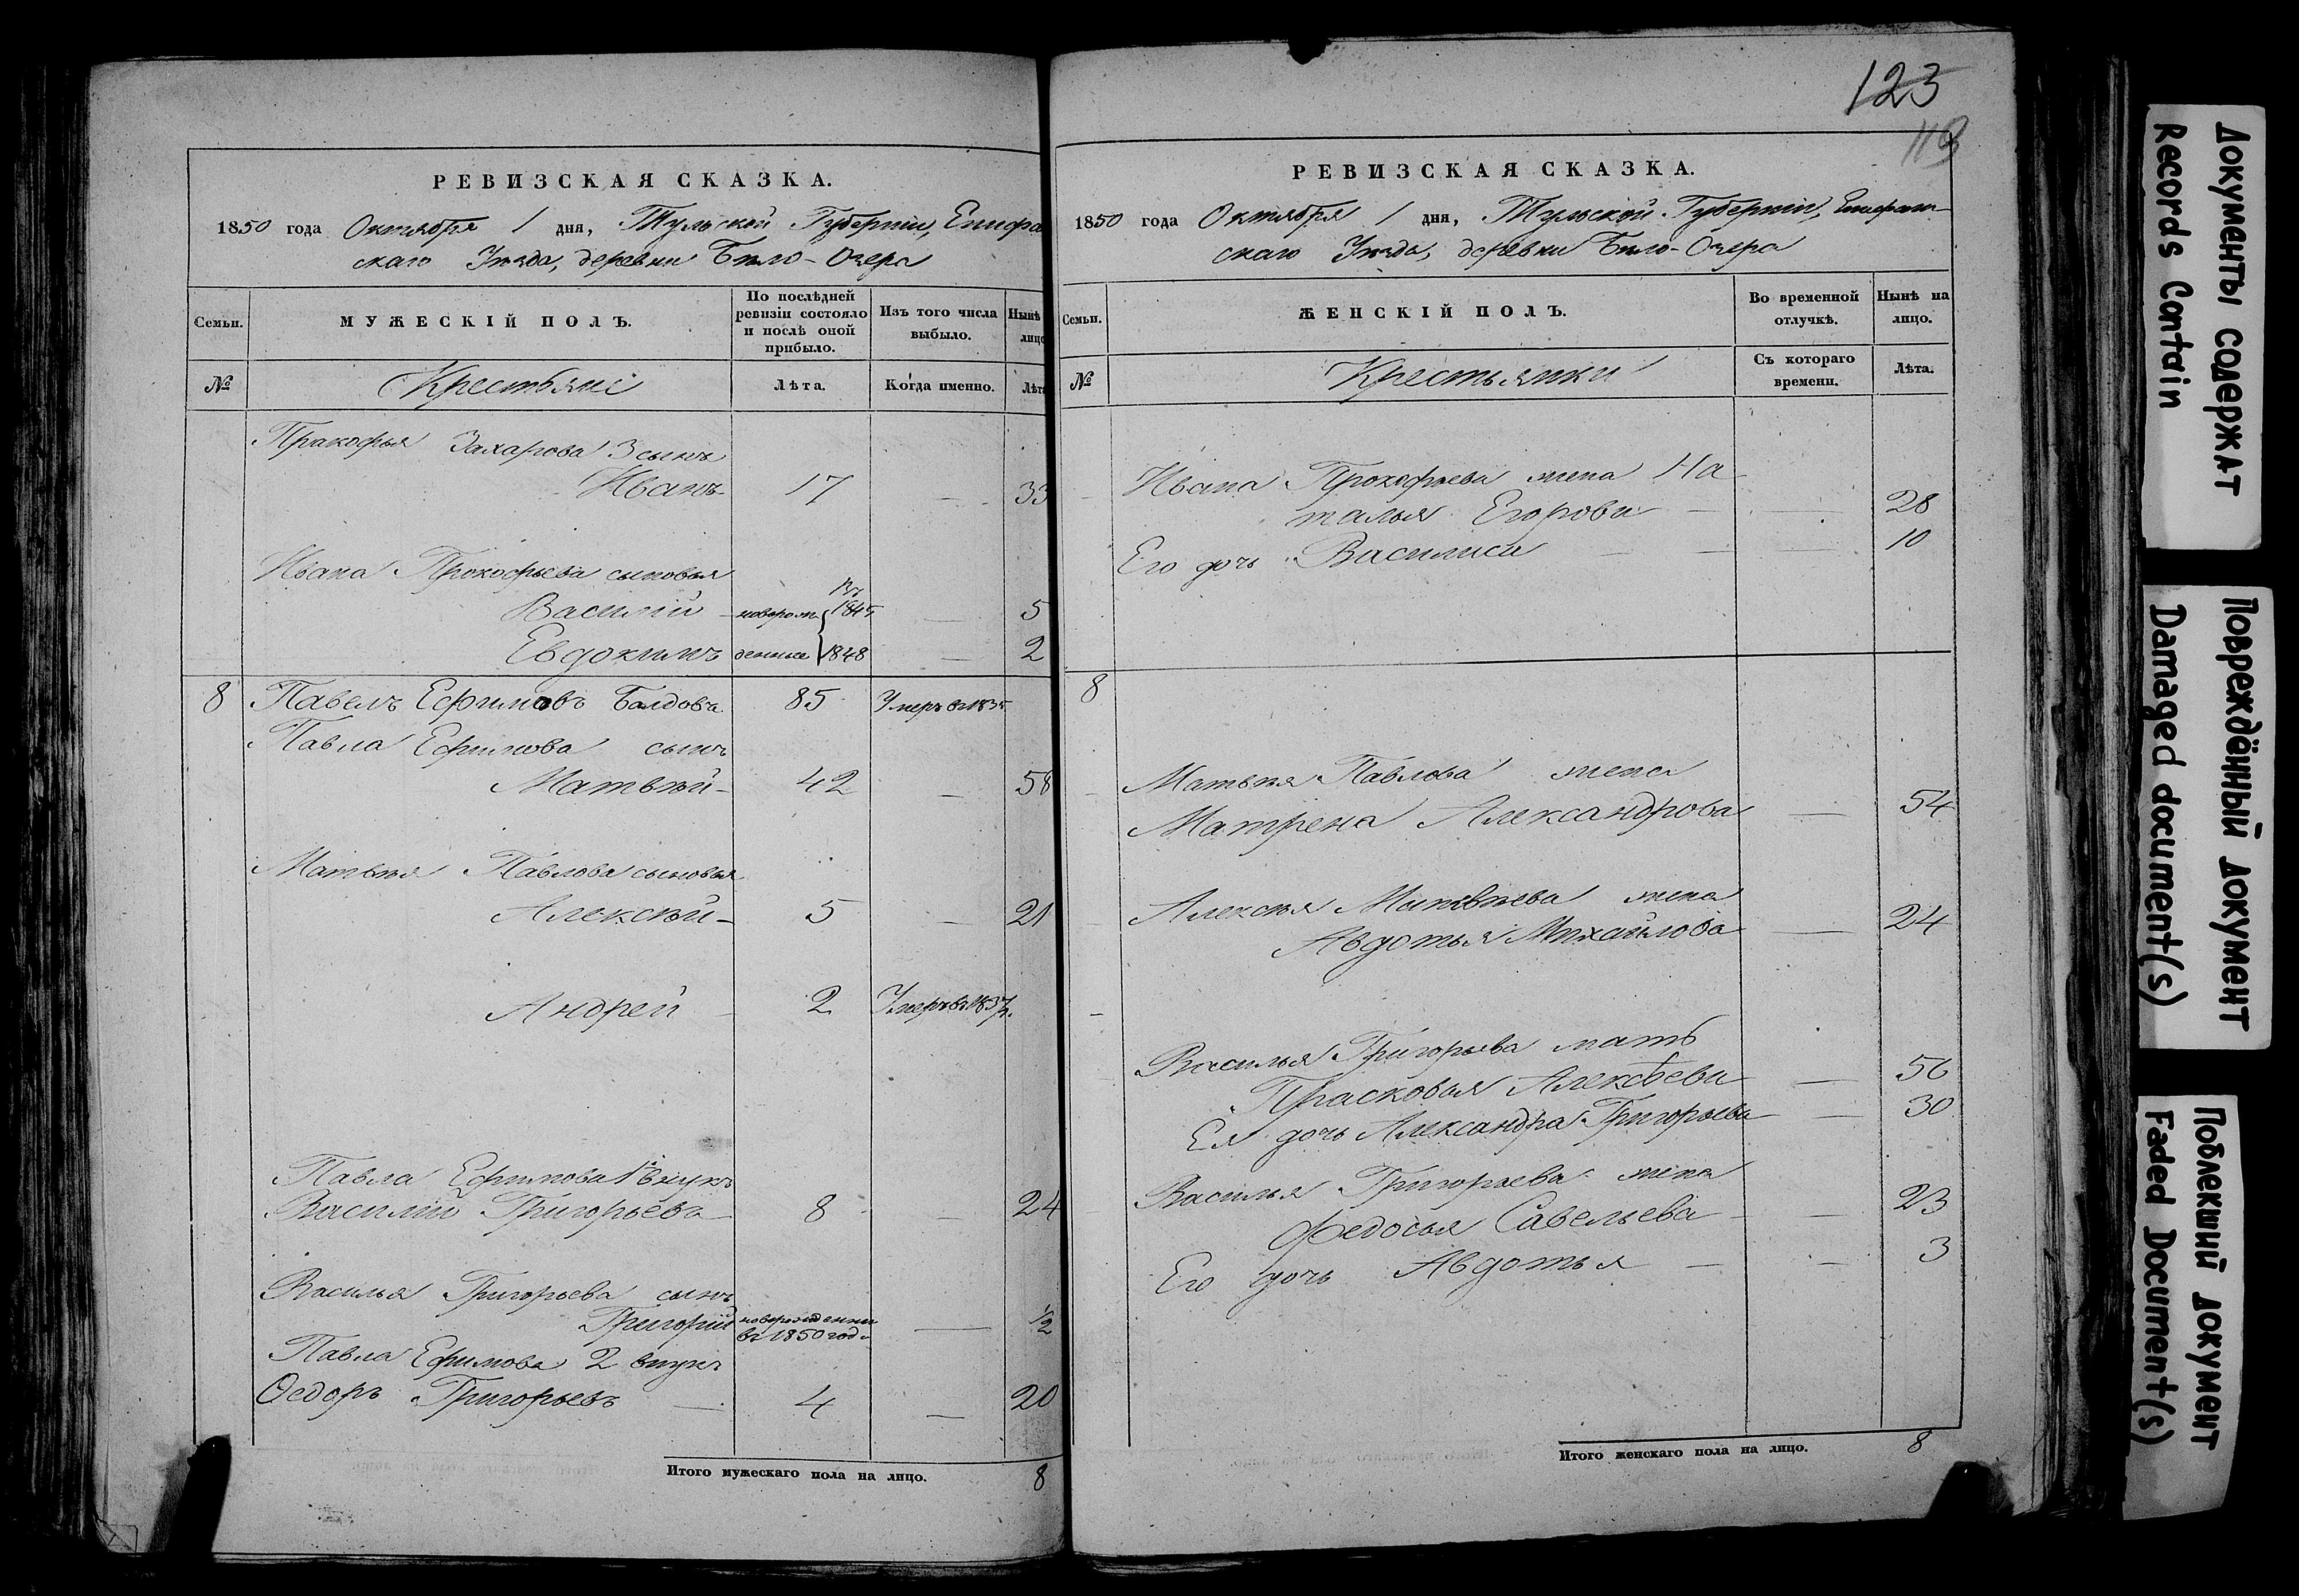 РЕВИЗСКАЯ СКАЗКА.
1850 года Октября 1 дня, Тульской Губерніи, Епифа
скаго Уѣзда, деревни Бѣло-Озера
Семьи.
МУЖЕСКІЙ ПОЛЪ.
По послѣдней ревизіи состояло и послѣ оной прибыло.
Изъ того числа выбыло.
Нынѣ лицо
№
Крестьяне
Лѣта.
Когда именно.
Лѣта
Прокофья Захарова 3 сынъ
Иванъ 17 — 33
Ивана Прокофьева сыновья
Въ
Василій новорож 1845 — 5
Евдокимъ денные 1848 — 2
8 Павелъ Ефимовъ Болдовъ 85 Умеръ въ 1835
Павла Ефимова сынъ
Матвѣй 42 — 58
Матвѣя Павлова сыновья
Алексѣй 5 — 21
Андрей 2 Умеръ въ 1837 г.
Павла Ефимова 1 внукъ
Василій Григорьевъ 8 — 24
Василья Григорьева сынъ
Григорій новорожденный въ 1850 годе — 1/2
Павла Ефимова 2 внукъ
Ѳедоръ Григорьевъ — 4 — 20
Итого мужескаго пола на лицо. 8
123
119
РЕВИЗСКАЯ СКАЗКА.
1850 года Октября 1 дня, Тульской Губерніи, Епифан
скаго Уѣзда, деревни Бѣло-Озера
Семьи.
ЖЕНСКІЙ ПОЛЪ.
Во временной отлучкѣ.
Нынѣ на лицо.
№
Крестьянки
Съ котораго времени.
Лѣта.
Ивана Прокофьева жена На
талья Егорова — 28
Его дочь Василиса — — 10
8
Матвѣя Павлова жена
Матрена Александрова — 54
Алексѣя Матвѣева жена
Авдотья Михайлова — 24
Василья Григорьева мать
Прасковья Алексѣева — 56
Ея дочь Александра Григорьева — 30
Василья Григорьева жена
Федосья Савельева — 23
Его дочь Авдотья — — 3
Итого женскаго пола на лицо. 8
Документы содержат
Records Contain
Повреждённый документ
Damaged document(s)
Поблекший документ
Faded Document(s)